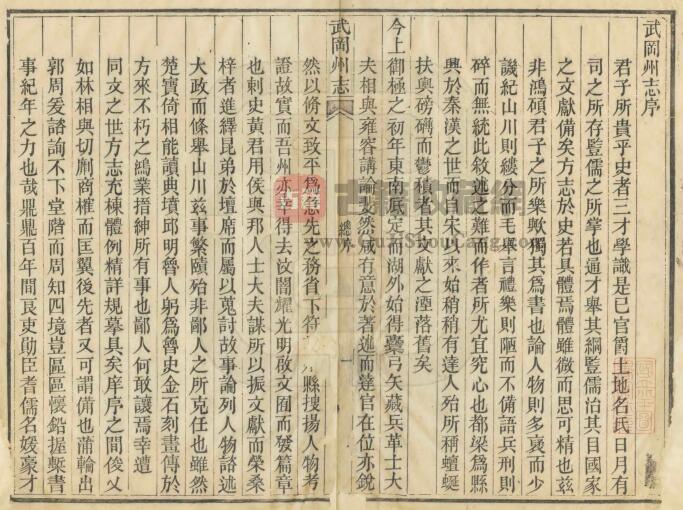 武岡州志序
君子所貴乎史者三才學識是已官爵土地名氏日月有
司之所存豎儒之所掌也通才舉其綱豎儒治其目國家
之文獻備矣方志於史若具體焉體雖微而思可精也茲
非鴻碩君子之所樂歟獨其為書也論人物則多褒而少
譏紀山川則縷分而毛舉言禮樂則陋而不備語兵刑則
碎而無統此敘述之難而作者所尤宜究心也都梁為縣
興於秦漢之世而自宋以來始稍稍有達人殆所稱蟺蜒
扶輿磅礴而鬱積者其文獻之湮落舊矣
今上御極之初年東南底定而湖外始得櫜弓矢藏兵革士大
夫相與雍容講論文然咸有意於著述而達官在位亦銳
武岡州志
總序
一
然以脩文致平為急先之務省下符
縣搜揚人物考
證故實而吾州亦幸得去汶闇耀光明啟文囿而發篇章
也剌史黃君用侯與邦人士大夫謀所以振文獻而榮桑
梓者進繹昆弟於壇席而屬以蒐討故事論列人物諮述
大政而條舉山川茲事繁賾殆非鄙人之所克任也雖然
楚寶倚相能讀典墳邱明魯人躬為魯史金石刻畫傳於
方來不朽之鴻業搢紳所有事也鄙人何敢讓焉幸遭
同文之世方志充棟體例精詳規摹具矣庠序之間俊乂
如林相與切劘商榷而匡翼後先者又可謂備也蒲輪出
郭周爰諮詢不下堂階而周知四境豈區區懷鉛握槧書
事紀年之力也哉鼎鼎百年間良吏勛臣耆儒名媛豪才
古籍收藏網
www.GujiShouCang.com